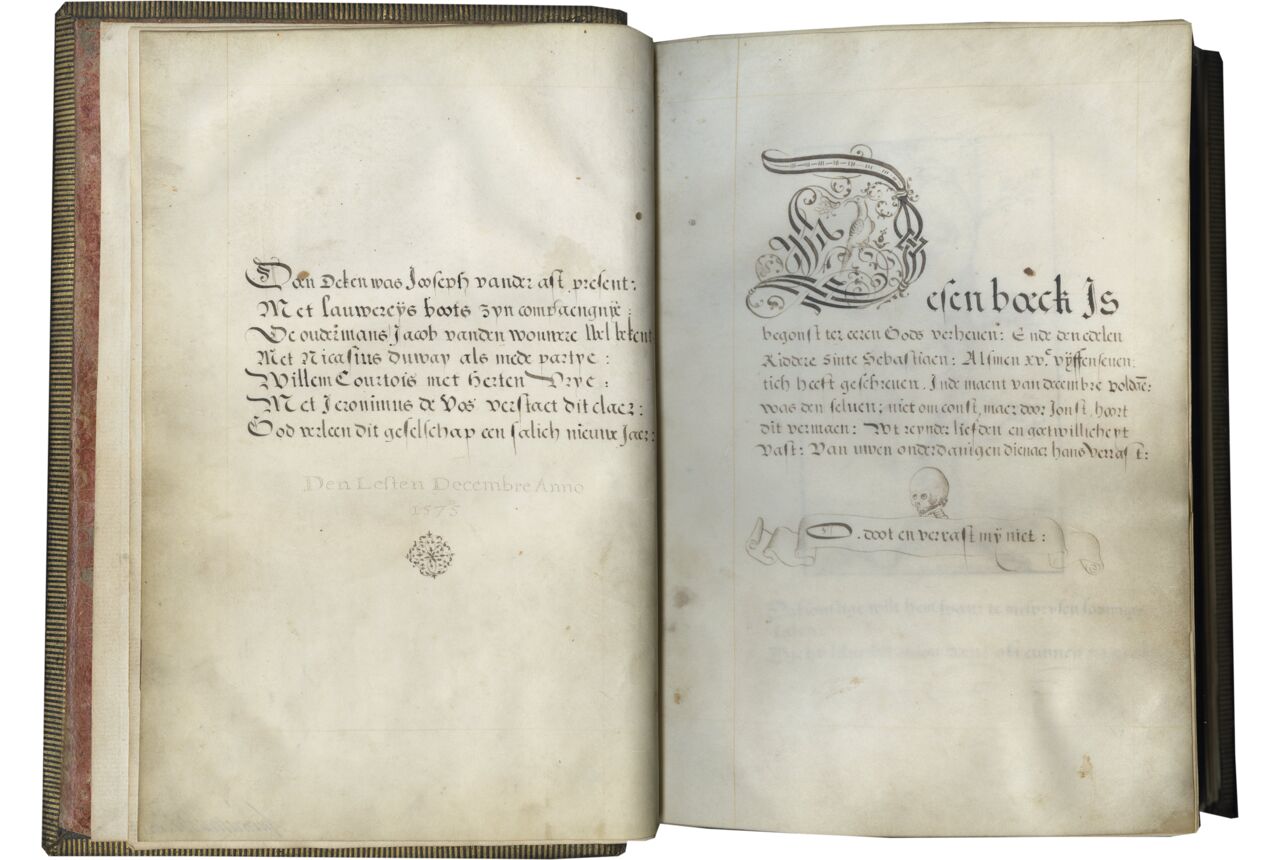 Doen Deken was Jooseph vander ast present:
Met Lauwereÿs boots zyn compaengnije:
De oudermans Jacob vanden wouwere Wel bekent
Met Nicasius duway als mede partye:
Willem Courtois met Herten Vrye:
Met Jeronimus de Vos verstaet dit claer:
God verleen dit geselschap een salich nieuwe Jaer:
Den Lesten Decembre Anno
1575
Desen boeck Is
begonst ter eeren Gods verheuen: Ende den edelen
Riddere Sinte Sebastiaen: Alsmen xv.c vÿffenseuen:
tich heeft geschreuen. Inde maent van decembre voldaē:
was den seluen: niet om const, maer door Jonst, hoort
dit vermaen: Wt reynder liefden en goetwillicheyt
vast: Van uwen onderdanigen dienaer hans verrast:
O. doot en verrast mÿ niet: